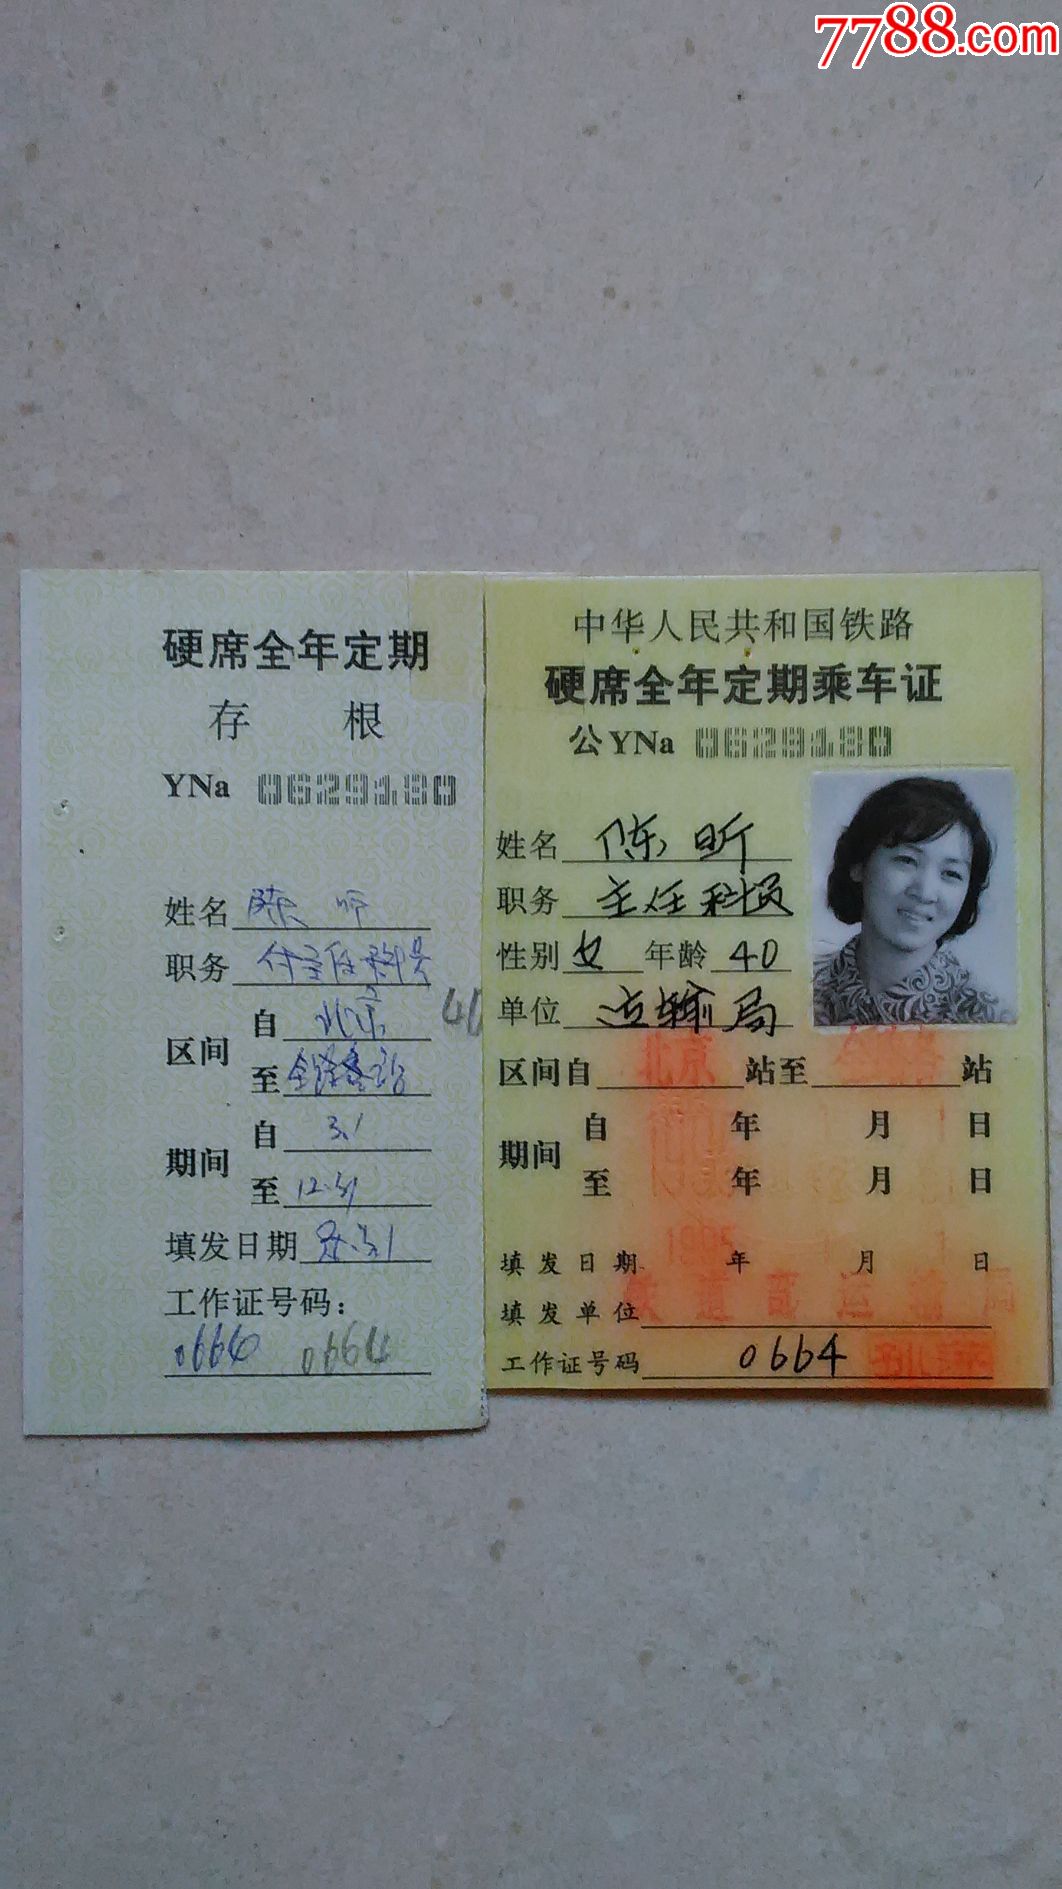 7788.com
硬席全年定期
存 根
YNa 0629180
姓名 陈昕
职务 付主任科员
区间 自 北京
至 全路各站
期间 自 3.1
至 12.31
填发日期
工作证号码：
0664 0664
40
中华人民共和国铁路
硬席全年定期乘车证
公YNa 0629180
姓名 陈昕
职务 主任科员
性别 女 年龄 40
单位 运输局
区间自 北京 站至 站
期间 自 年 月 日
至 年 月 日
填发日期 1995 年 月 日
填发单位 铁道部运输局
工作证号码 0664